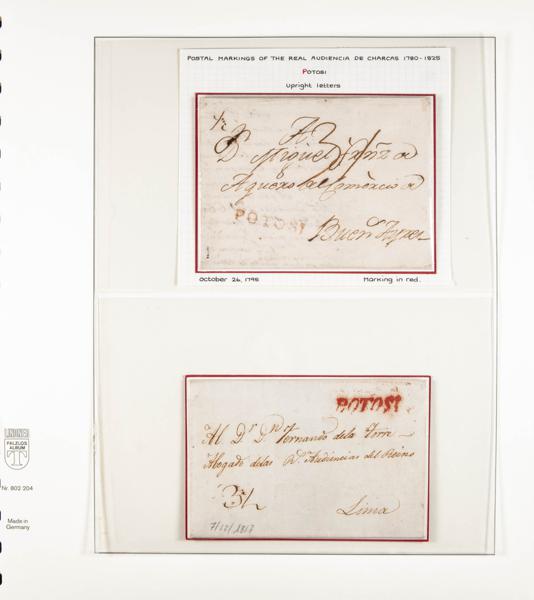 POSTAL MARKINGS OF THE REAL AUDIENCIA DE CHARCAS 1780-1825
POTOSI
Upright letters
D. Miguel
Aguero del Comercio
POTOSI
Buen
October 26, 1795
Marking in red.
POTOSI
Al Dr. Dn. Fernando dela Torre
Abogado delas Rs. Audiencias del Reino
Lima
LINDNER
FALZLOS
ALBUM
T
Nr. 802 204
Made in
Germany